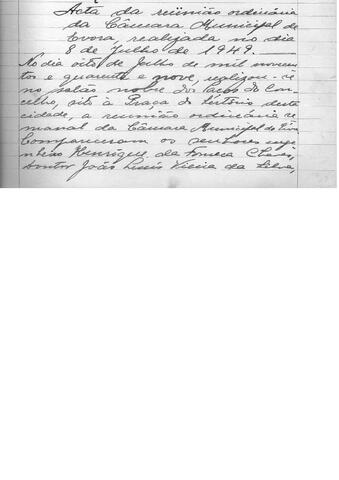 Acta da reünião ordinária
da Câmara Municipal de
Évora, realizada no dia
8 de Julho de 1949.
No dia oito de Julho de mil novecen
tos e quarenta e nove, realizou-se
no salão nobre dos Paços do Con
celho, sito à Praça do Sertório desta
cidade, a reunião ordinária se
manal da Câmara Municipal de Évora
Compareceram os senhores enge
nheiro Henrique da Fonseca Chaves,
doutor João Luís Vieira da Silva,